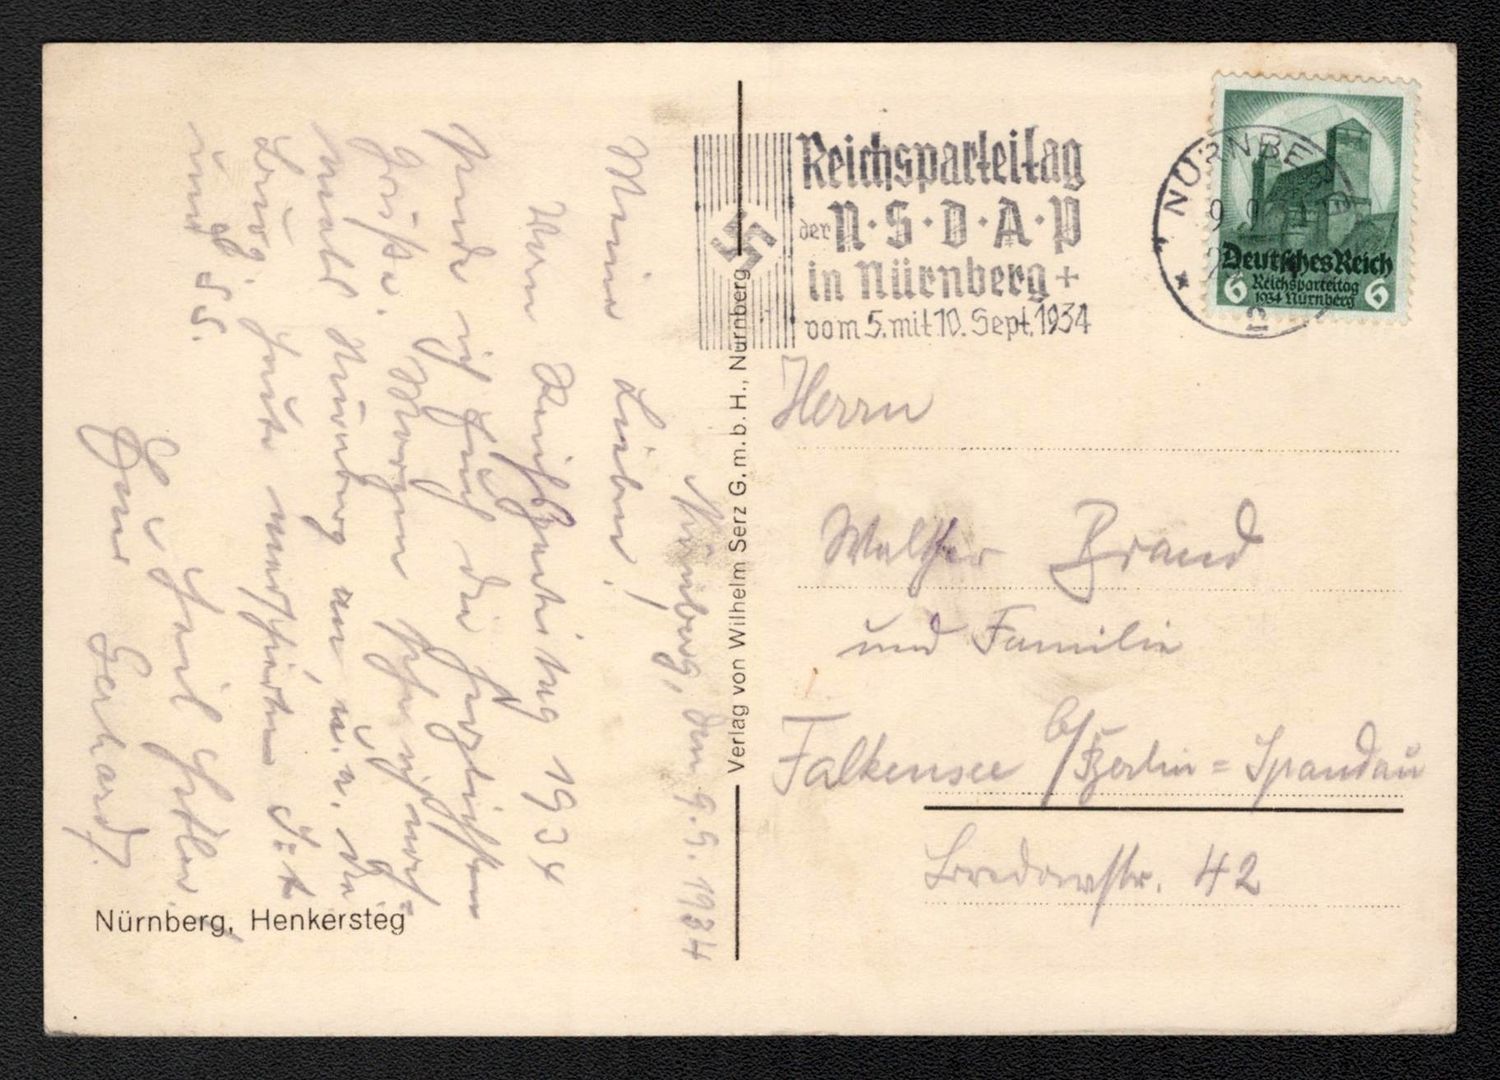 Reichsparteitag
der N·S·D·A·P
in Nürnberg +
vom 5. mit 10. Sept. 1934
NÜRNBERG
2
Deutsches Reich
6 Reichsparteitag 6
1934 Nürnberg
Nürnberg, den 9.9.1934
Meine Lieben!
Vom Reichsparteitag 1934
sende ich Euch die herzlichsten
Grüße. Morgen sehe ich noch=
mals Nürnberg an, u. a. die
Burg. Heute marschierten
und SS.
Heil Hitler!
Euer Gerhard.
Nürnberg, Henkersteg
Verlag von Wilhelm Serz G.m.b.H., Nürnberg
Herrn
Walther Brand
und Familie
Falkensee b/Berlin=Spandau
Bredowstr. 42